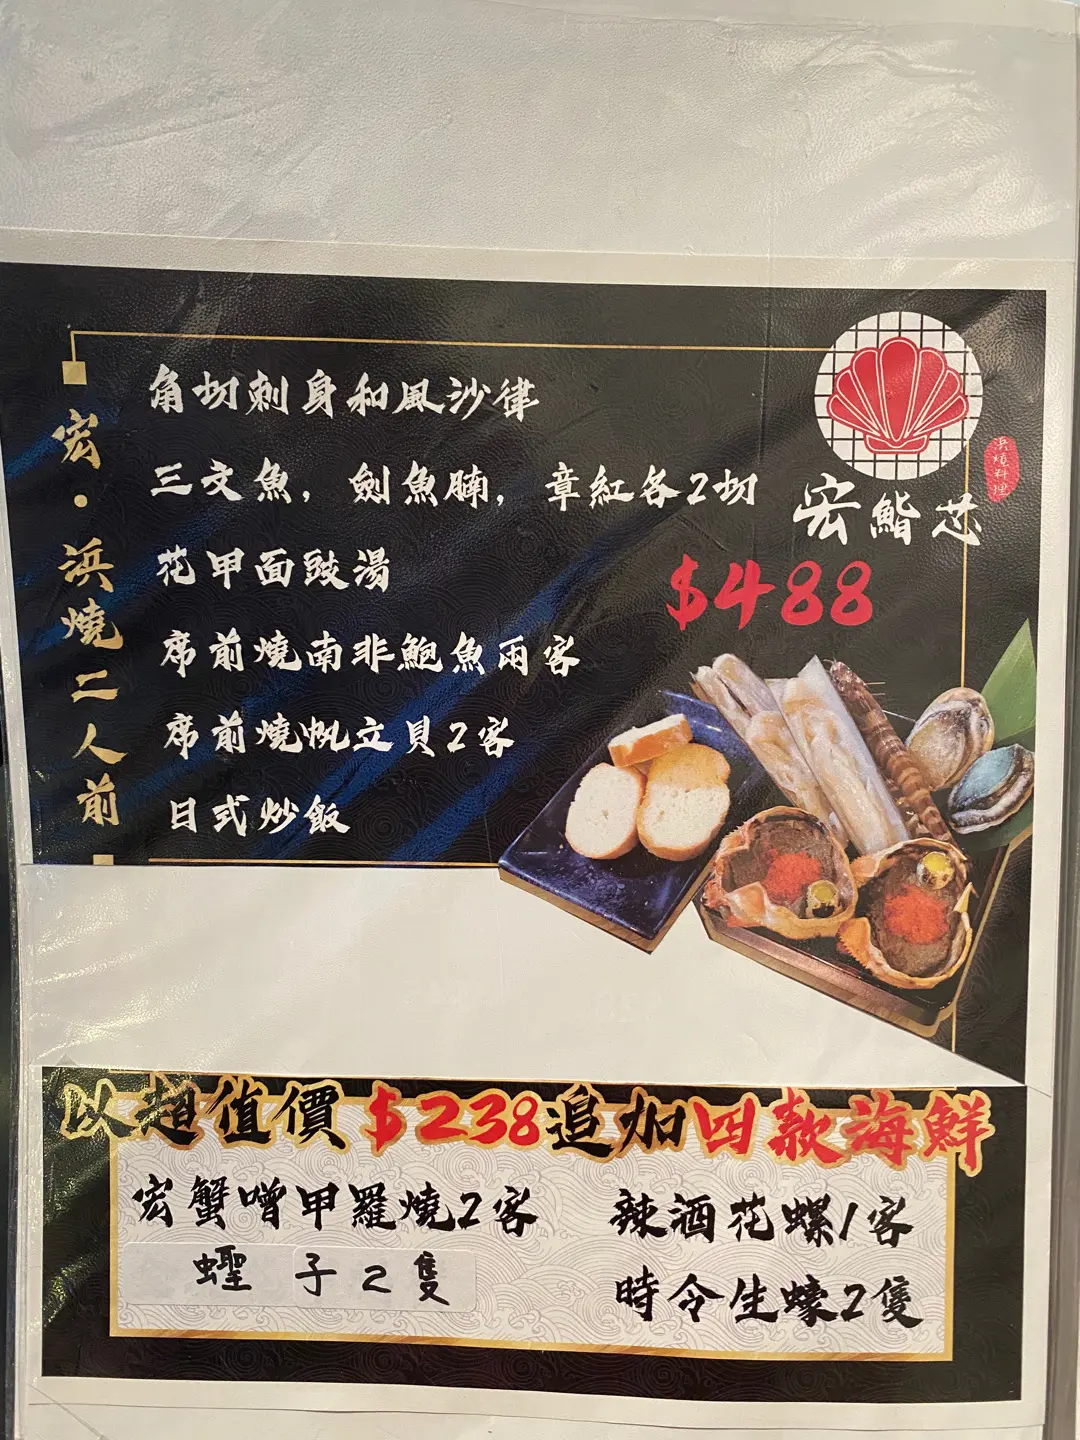 宏・浜燒二人前
角切刺身和風沙律
三文魚，劍魚腩，章紅各2切
花甲面豉湯
席前燒南非鮑魚兩客
席前燒帆立貝2客
日式炒飯
浜燒料理
宏鮨芯
$488
以超值價$238追加四款海鮮
宏蟹噌甲羅燒2客
蟶子2隻
辣酒花螺1客
時令生蠔2隻